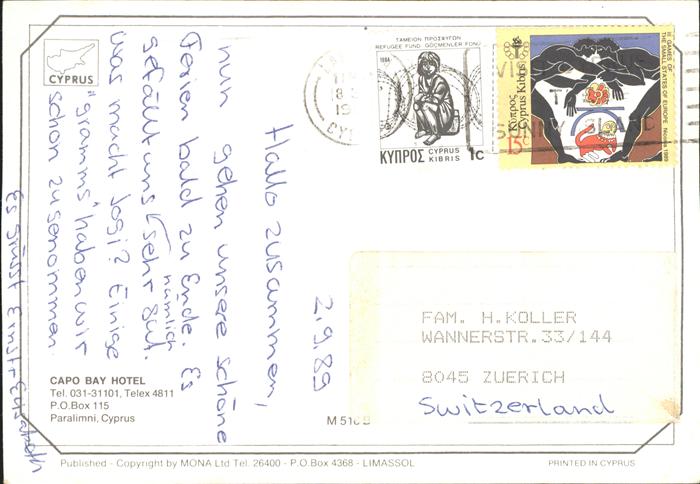 CYPRUS
2.9.89
Hallo zusammen,
nun gehen unsere schöne
Ferien bald zu Ende. Es
gefällt uns nämlich sehr gut.
was macht Jogi? Einige
"gramms" haben wir
schon zusenommen.
Es grüsst Ernst + Elisabeth
CAPO BAY HOTEL
Tel. 031-31101, Telex 4811
P.O.Box 115
Paralimni, Cyprus
M 510B
Published - Copyright by MONA Ltd Tel. 26400 - P.O.Box 4368 - LIMASSOL
PRINTED IN CYPRUS
ΤΑΜΕΙΟΝ ΠΡΟΣΦΥΓΩΝ
REFUGEE FUND GÖÇMENLER FONU
1984
ΚΥΠΡΟΣ CYPRUS KIBRIS 1c
Κύπρος
Cyprus Kıbrıs
15c
III GAMES OF
THE SMALL STATES OF EUROPE Nicosia 1989
FAM. H.KOLLER
WANNERSTR.33/144
8045 ZUERICH
Switzerland